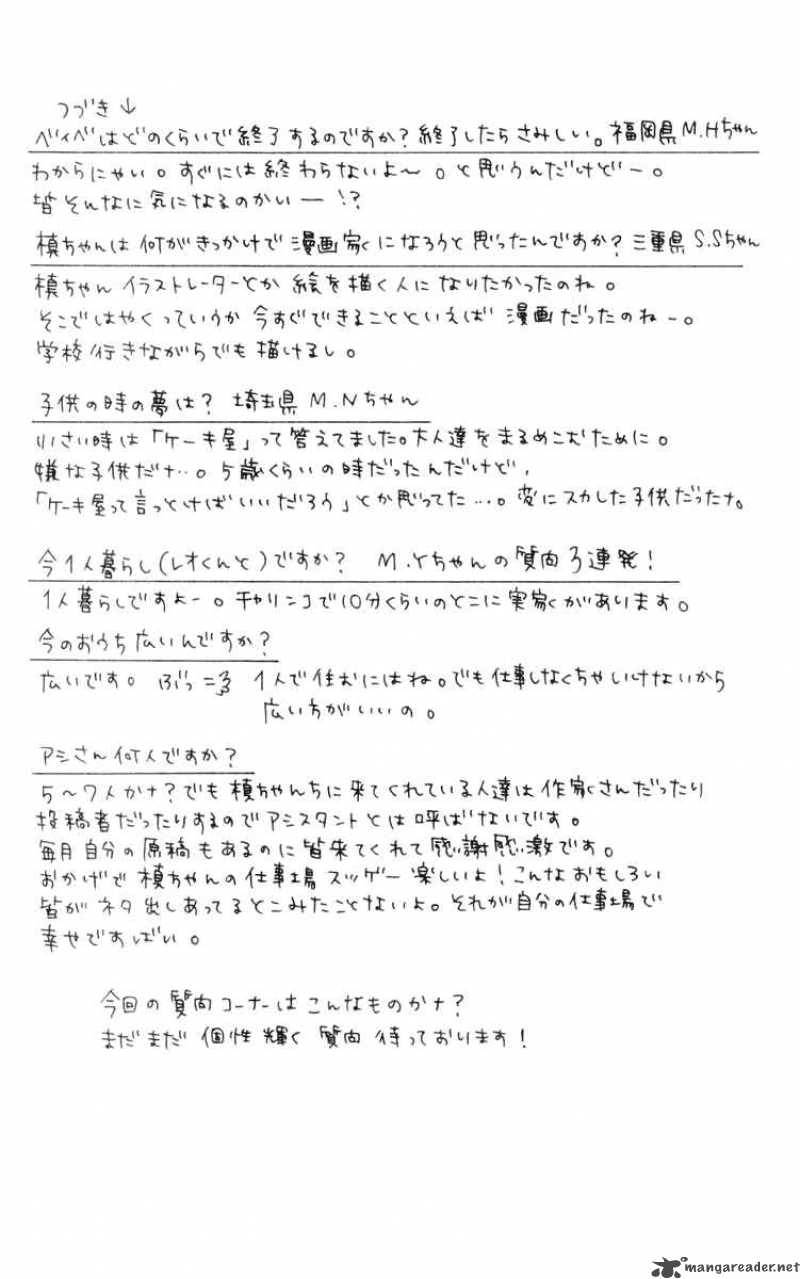 つづき↓
ベイベはどのくらいで終了するのですか?終了したらさみしい。福岡県M.Hちゃん
わからにゃい。すぐには終わらないよ〜。と思うんだけどー。
皆そんなに気になるのかいー!?
槙ちゃんは何がきっかけで漫画家になろうと思ったんですか?三重県S.Sちゃん
槙ちゃんイラストレーターとか絵を描く人になりたかったのね。
そこではやくっていうか今すぐできることといえば漫画だったのねー。
学校行きながらでも描けるし。
子供の時の夢は?埼玉県M.Nちゃん
小さい時は「ケーキ屋」って答えてました。大人達をまるめこむために。
嫌な子供だナ…。5歳くらいの時だったんだけど、
「ケーキ屋って言っとけばいいだろう」とか思ってた…。変にスカした子供だったナ。
今1人暮らし(レオくんと)ですか? M.Yちゃんの質問3連発!
1人暮らしですよー。チャリンコで10分くらいのとこに実家があります。
今のおうち広いんですか?
広いです。ぶっこ 1人で住むにはね。でも仕事しなくちゃいけないから
広い方がいいの。
アシさん何人ですか?
5〜7人かナ?でも槙ちゃんちに来てくれている人達は作家さんだったり
投稿者だったりするのでアシスタントとは呼ばないです。
毎月自分の原稿もあるのに皆来てくれて感謝感激です。
おかげで槙ちゃんの仕事場スッゲー楽しいよ!こんなおもしろい
皆がネタ出しあってるとこみたことないよ。それが自分の仕事場で
幸せですばい。
今回の質問コーナーはこんなものかナ?
まだまだ個性輝く質問待っております!
mangareader.net